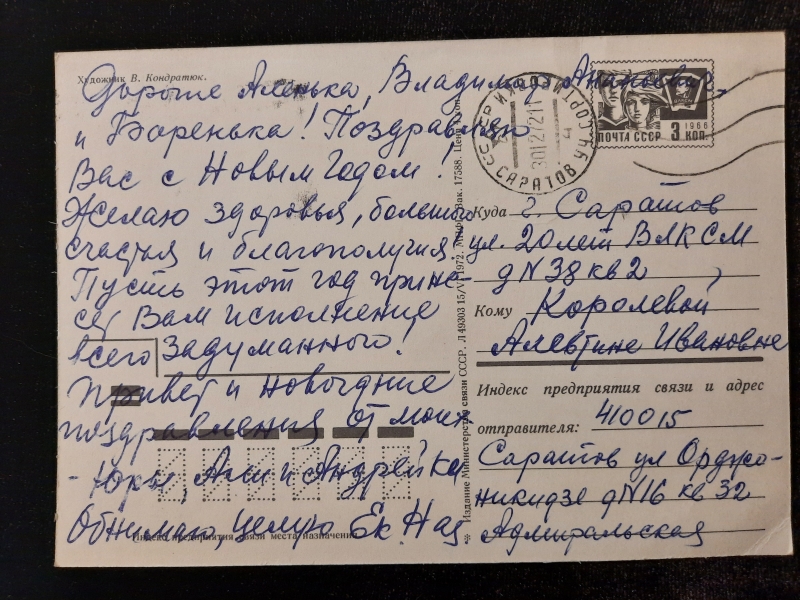 Художник В. Кондратюк.
Дорогие Аленька, Владимир
и Боренька! Поздравляю
Вас с Новым Годом!
Желаю здоровья, большого
счастья и благополучия.
Пусть этот год прине-
сет Вам исполнение
всего задуманного!
Привет и новогодние
поздравления от моих
- Юры, Али и Андрейки
Обнимаю, целую Ек Наз
Индекс предприятия связи места назначения
Издание Министерства связи СССР. Л 49303 15/V 1972. Зак. 17588. Цена
САРАТОВ
ПОЧТА СССР 3 КОП.
1966
Куда г. Саратов
ул. 20 лет ВЛКСМ
д N 38 кв 2
Кому Королевой
Алевтине Ивановне
Индекс предприятия связи и адрес
отправителя: 410015
Саратов ул Орджо-
никидзе д N 16 кв 32
Адмиральская